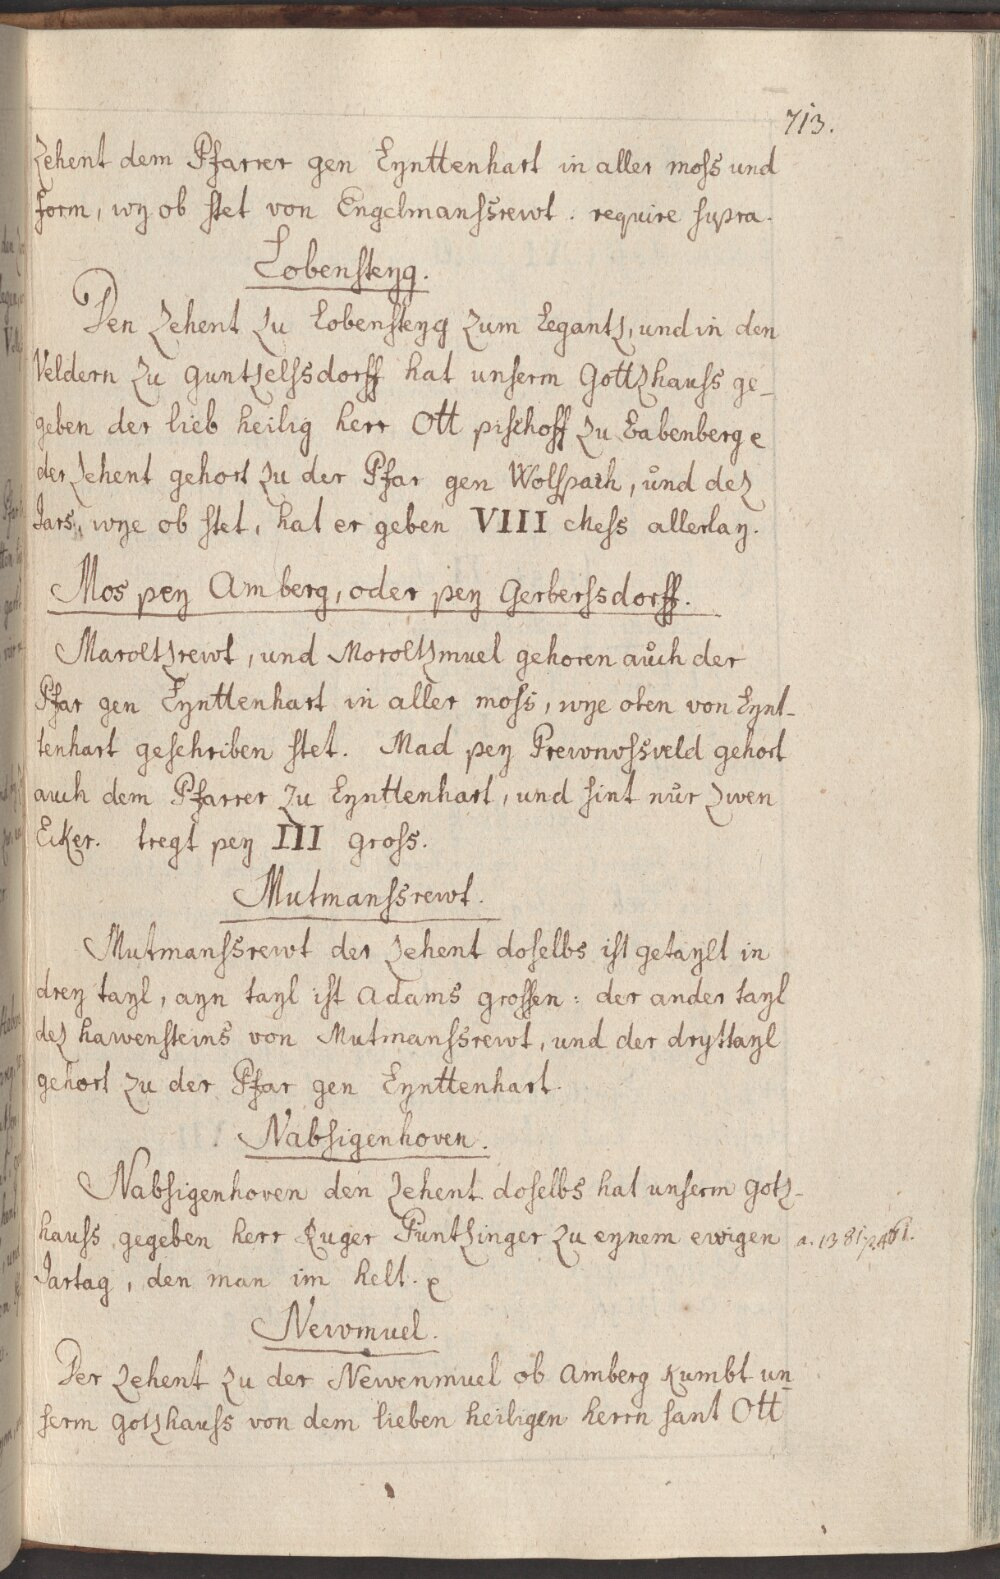 713.
Zehent dem Pfarrer gen Eynttenhart in aller moss und
form, wy ob stet von Engelmanssrewt. require supra.
Lobensteyg.
Den Zehent zu Lobensteyg zum Legantz, und in den
Veldern zu Guntzelssdorff hat unserm Gottzhauss ge-
geben der lieb heilig herr Ott pischoff zu Babenberg e
der Zehent gehort zu der Pfar gen Wolfpach, und dez
Jars, wye ob stet, hat er geben VIII chess allerlay.
Mos pey Amberg, oder pey Gerberssdorff.
Maroltzrewt, und Moroltzmuel gehoren auch der
Pfar gen Eynttenhart in aller moss, wye oben von Eynt-
tenhart geschriben stet. Mad pey Prewnvssveld gehort
auch dem Pfarrer zu Eynttenhart, und sint nur zwen
Ecker. tregt pey III gross.
Mutmanssrewt.
Mutmanssrewt der Zehent doselbs ist getaylt in
drey tayl, ayn tayl ist Adams grossen: der ander tayl
dez hawensteins von Mutmanssrewt, und der dryttayl
gehort zu der Pfar gen Eynttenhart.
Nabsigenhoven.
Nabsigenhoven den Zehent doselbs hat unserm gotz-
hauss gegeben herr Ruger Puntzinger zu eynem ewigen a. 1381.
Jartag, den man im helt. e
Newmuel.
Der Zehent zu der Newenmuel ob Amberg kumbt un-
serm gotzhauss von dem lieben heiligen herrn sant Ott